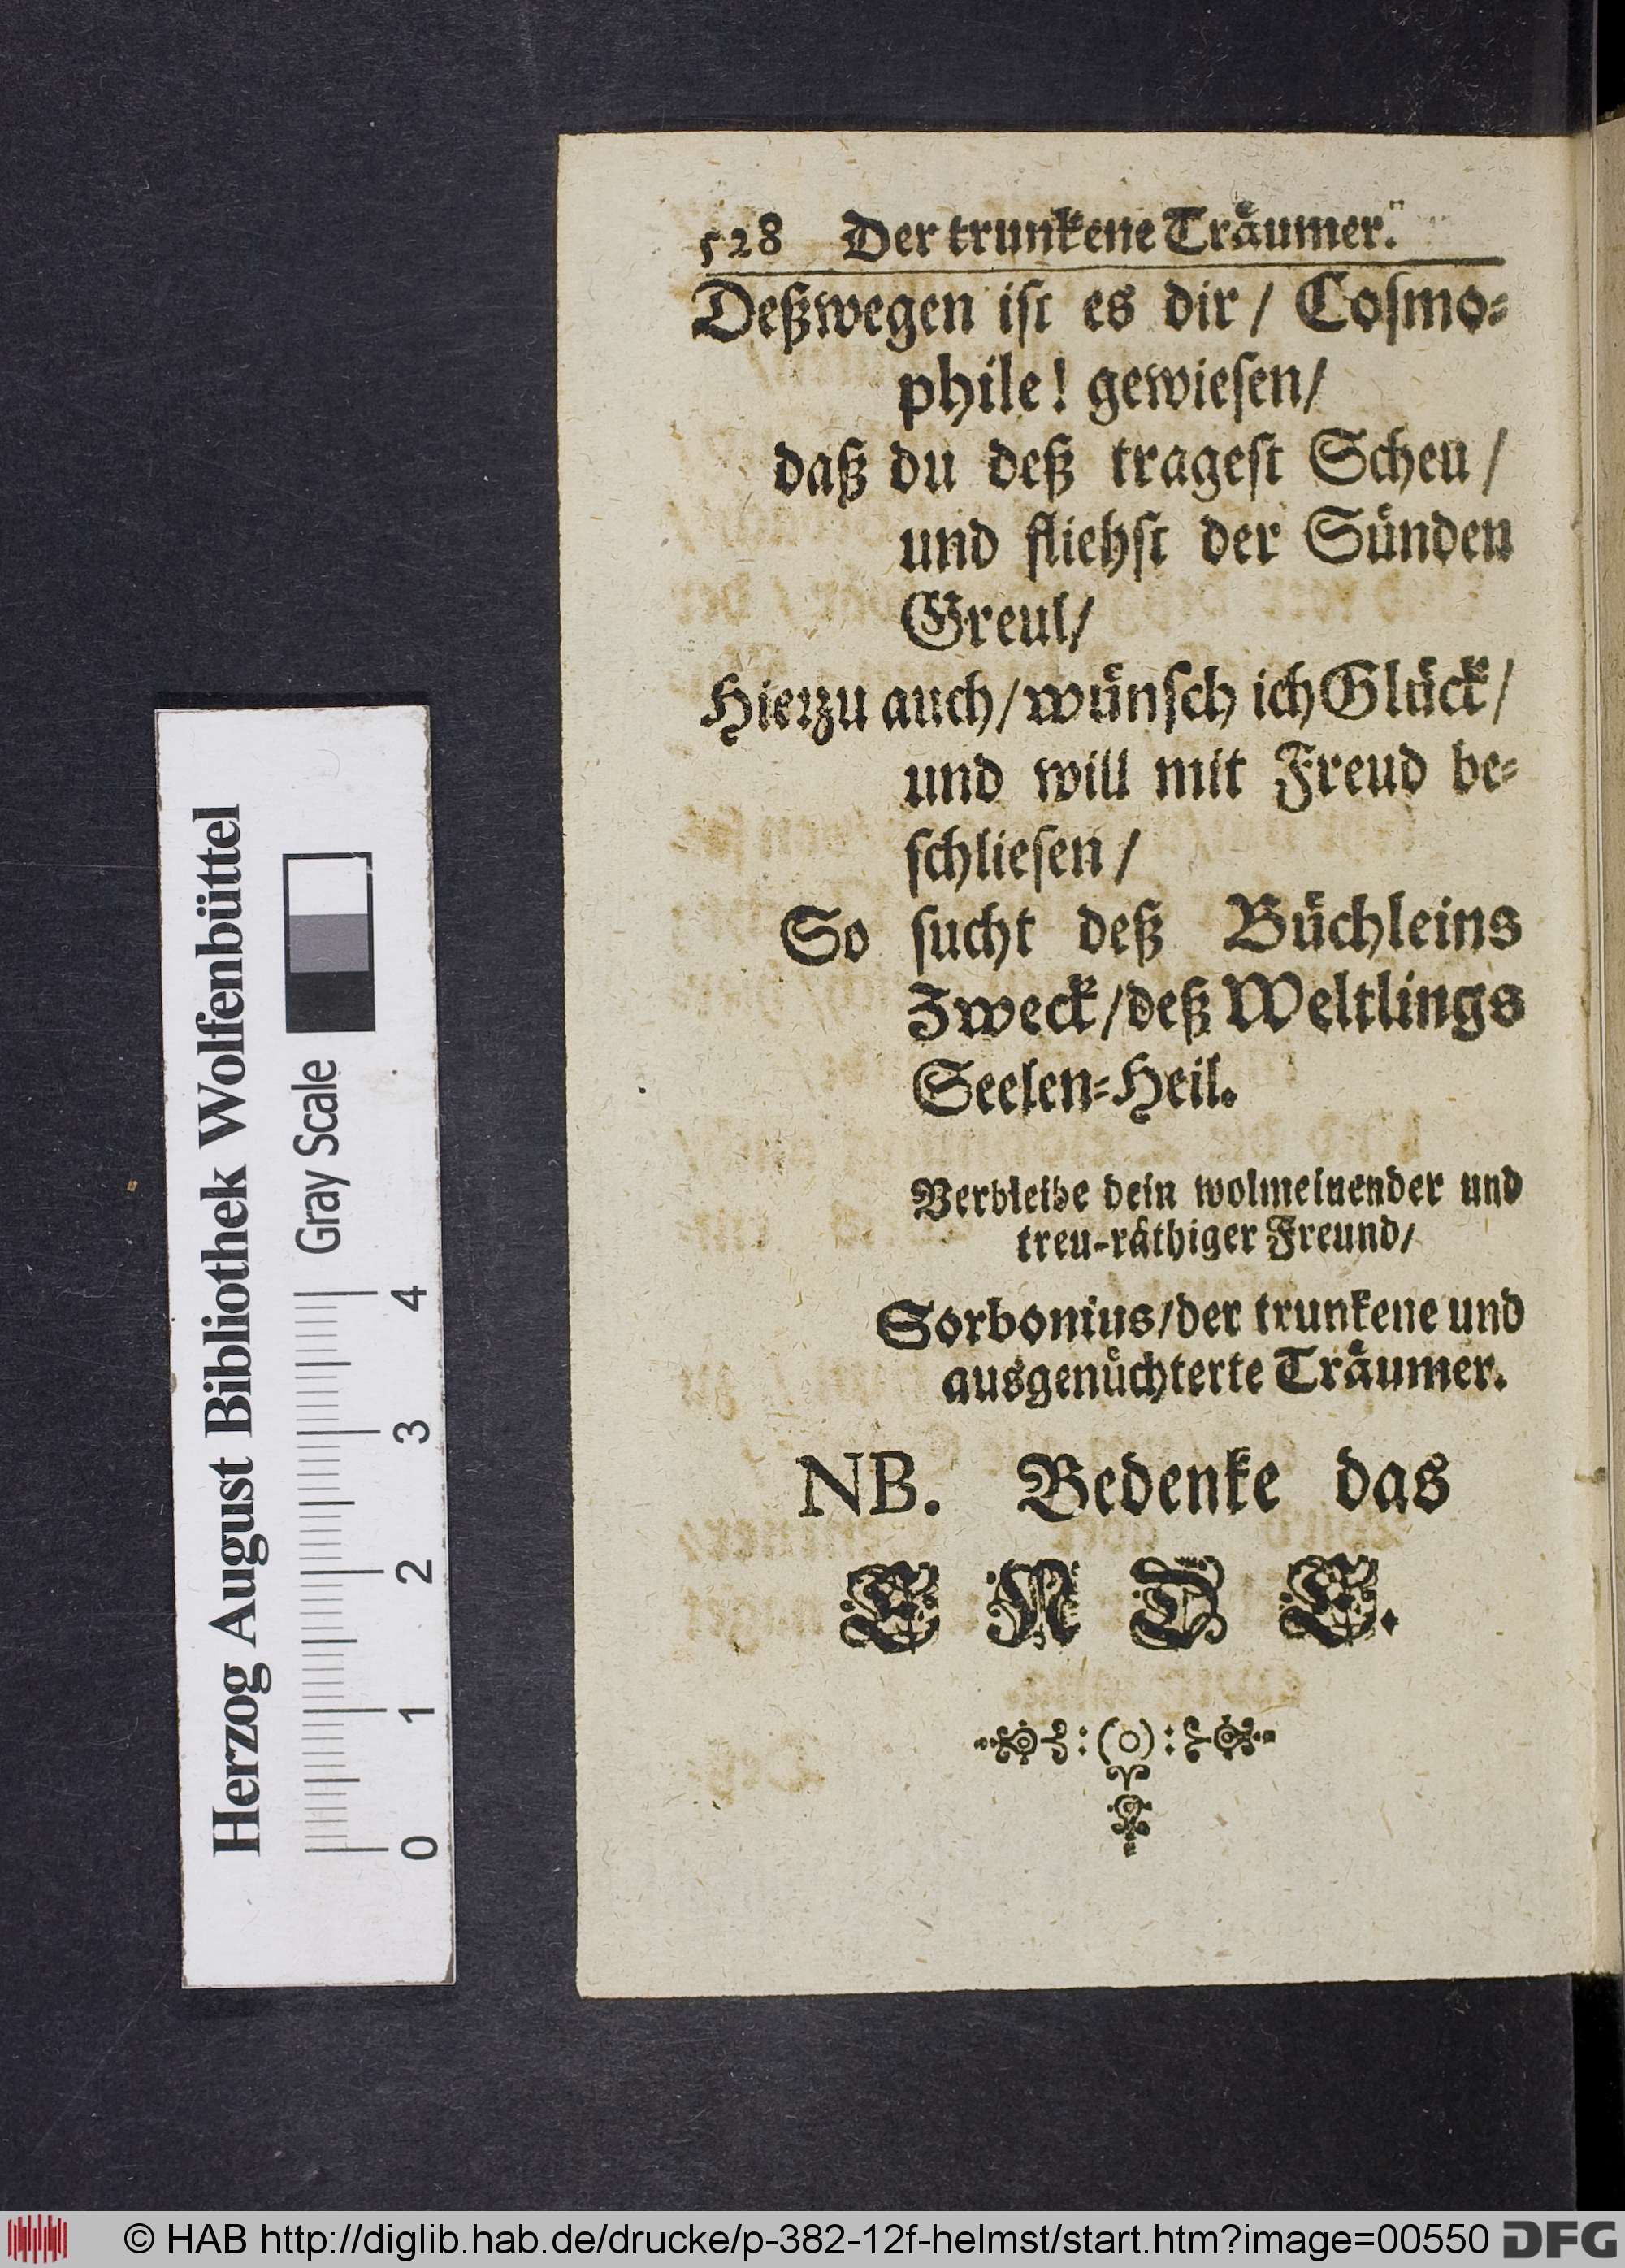 528 Der trunkene Träumer.
Deßwegen ist es dir / Cosmo-
phile! gewiesen/
daß du deß tragest Scheu /
und fliehst der Sünden
Greul/
Hierzu auch/wünsch ich Glück/
und will mit Freud be-
schliesen /
So sucht deß Büchleins
Zweck/deß Weltlings
Seelen-Heil.
Verbleibe dein wolmeinender und
treu-räthiger Freund/
Sorbonius/der trunkene und
ausgenüchterte Träumer.
NB. Bedenke das
ENDE.
:(O):
Herzog August Bibliothek Wolfenbüttel
Gray Scale
0 1 2 3 4
© HAB http://diglib.hab.de/drucke/p-382-12f-helmst/start.htm?image=00550 DFG